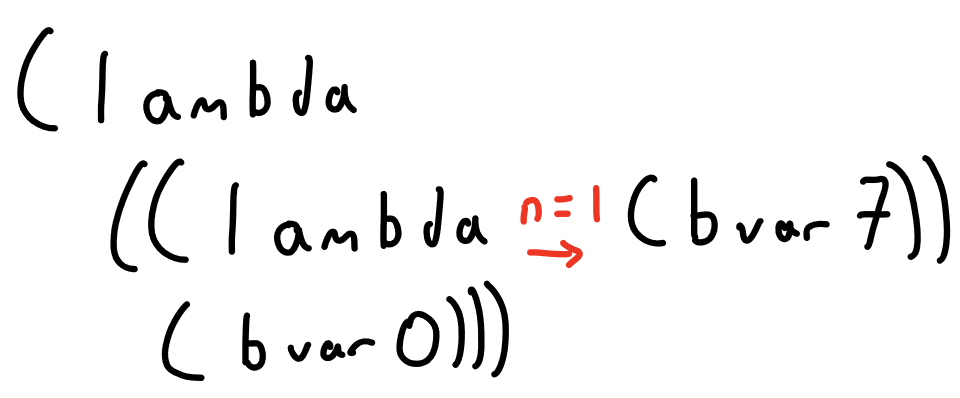 (lambda
((lambda n=1 → (bvar 7))
(bvar 0)))